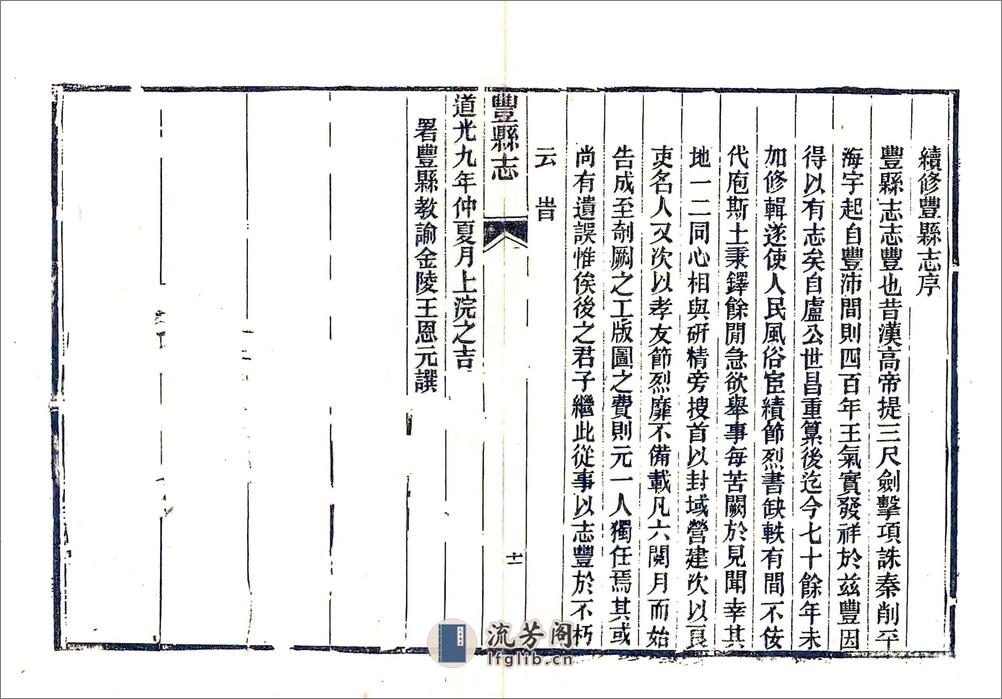 續修豐縣志序
豐縣志志豐也昔漢高帝提三尺劍擊項誅秦削平
海宇起自豐沛間則四百年王氣實發祥於兹豐因
得以有志矣自盧公世昌重纂後迄今七十餘年未
加修輯遂使人民風俗宦績節烈書缺軼有間不佞
代庖斯土秉鐸餘閒急欲舉事每苦闕於見聞幸其
地一二同心相與研精旁搜首以封域營建次以良
吏名人又次以孝友節烈靡不備載凡六閱月而始
告成至剞劂之工版圖之費則元一人獨任焉其或
尚有遺誤惟俟後之君子繼此從事以志豐於不朽
云旹
豐縣志
十一
道光九年仲夏月上浣之吉
署豐縣教諭金陵王恩元譔
流芳阁
lfglib.cn